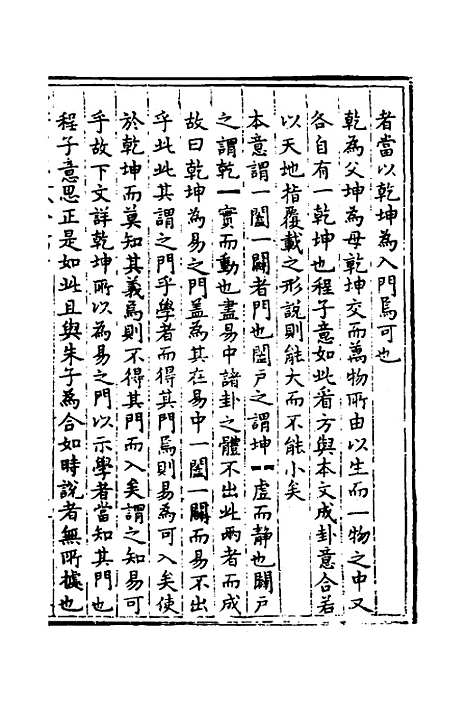 者當以乾坤為入門焉可也
乾為父坤為母乾坤交而萬物所由以生而一物之中又
各自有一乾坤也程子意如此看方與本文成卦意合若
以天地指覆載之形說則能大而不能小矣
本意謂一闔一闢者門也闔戶之謂坤⚋虛而靜也闢戶
之謂乾一實而動也盡易中諸卦之體不出此兩者而成
故曰乾坤為易之門蓋為其在易中一闔一闢而易不出
乎此此其謂之門乎學者而得其門焉則易為可入矣使
於乾坤而莫知其義焉則不得其門而入矣謂之知易可
乎故下文詳乾坤所以為易之門以示學者當知其門也
程子意思正是如此且與朱子為合如時說者無所據也